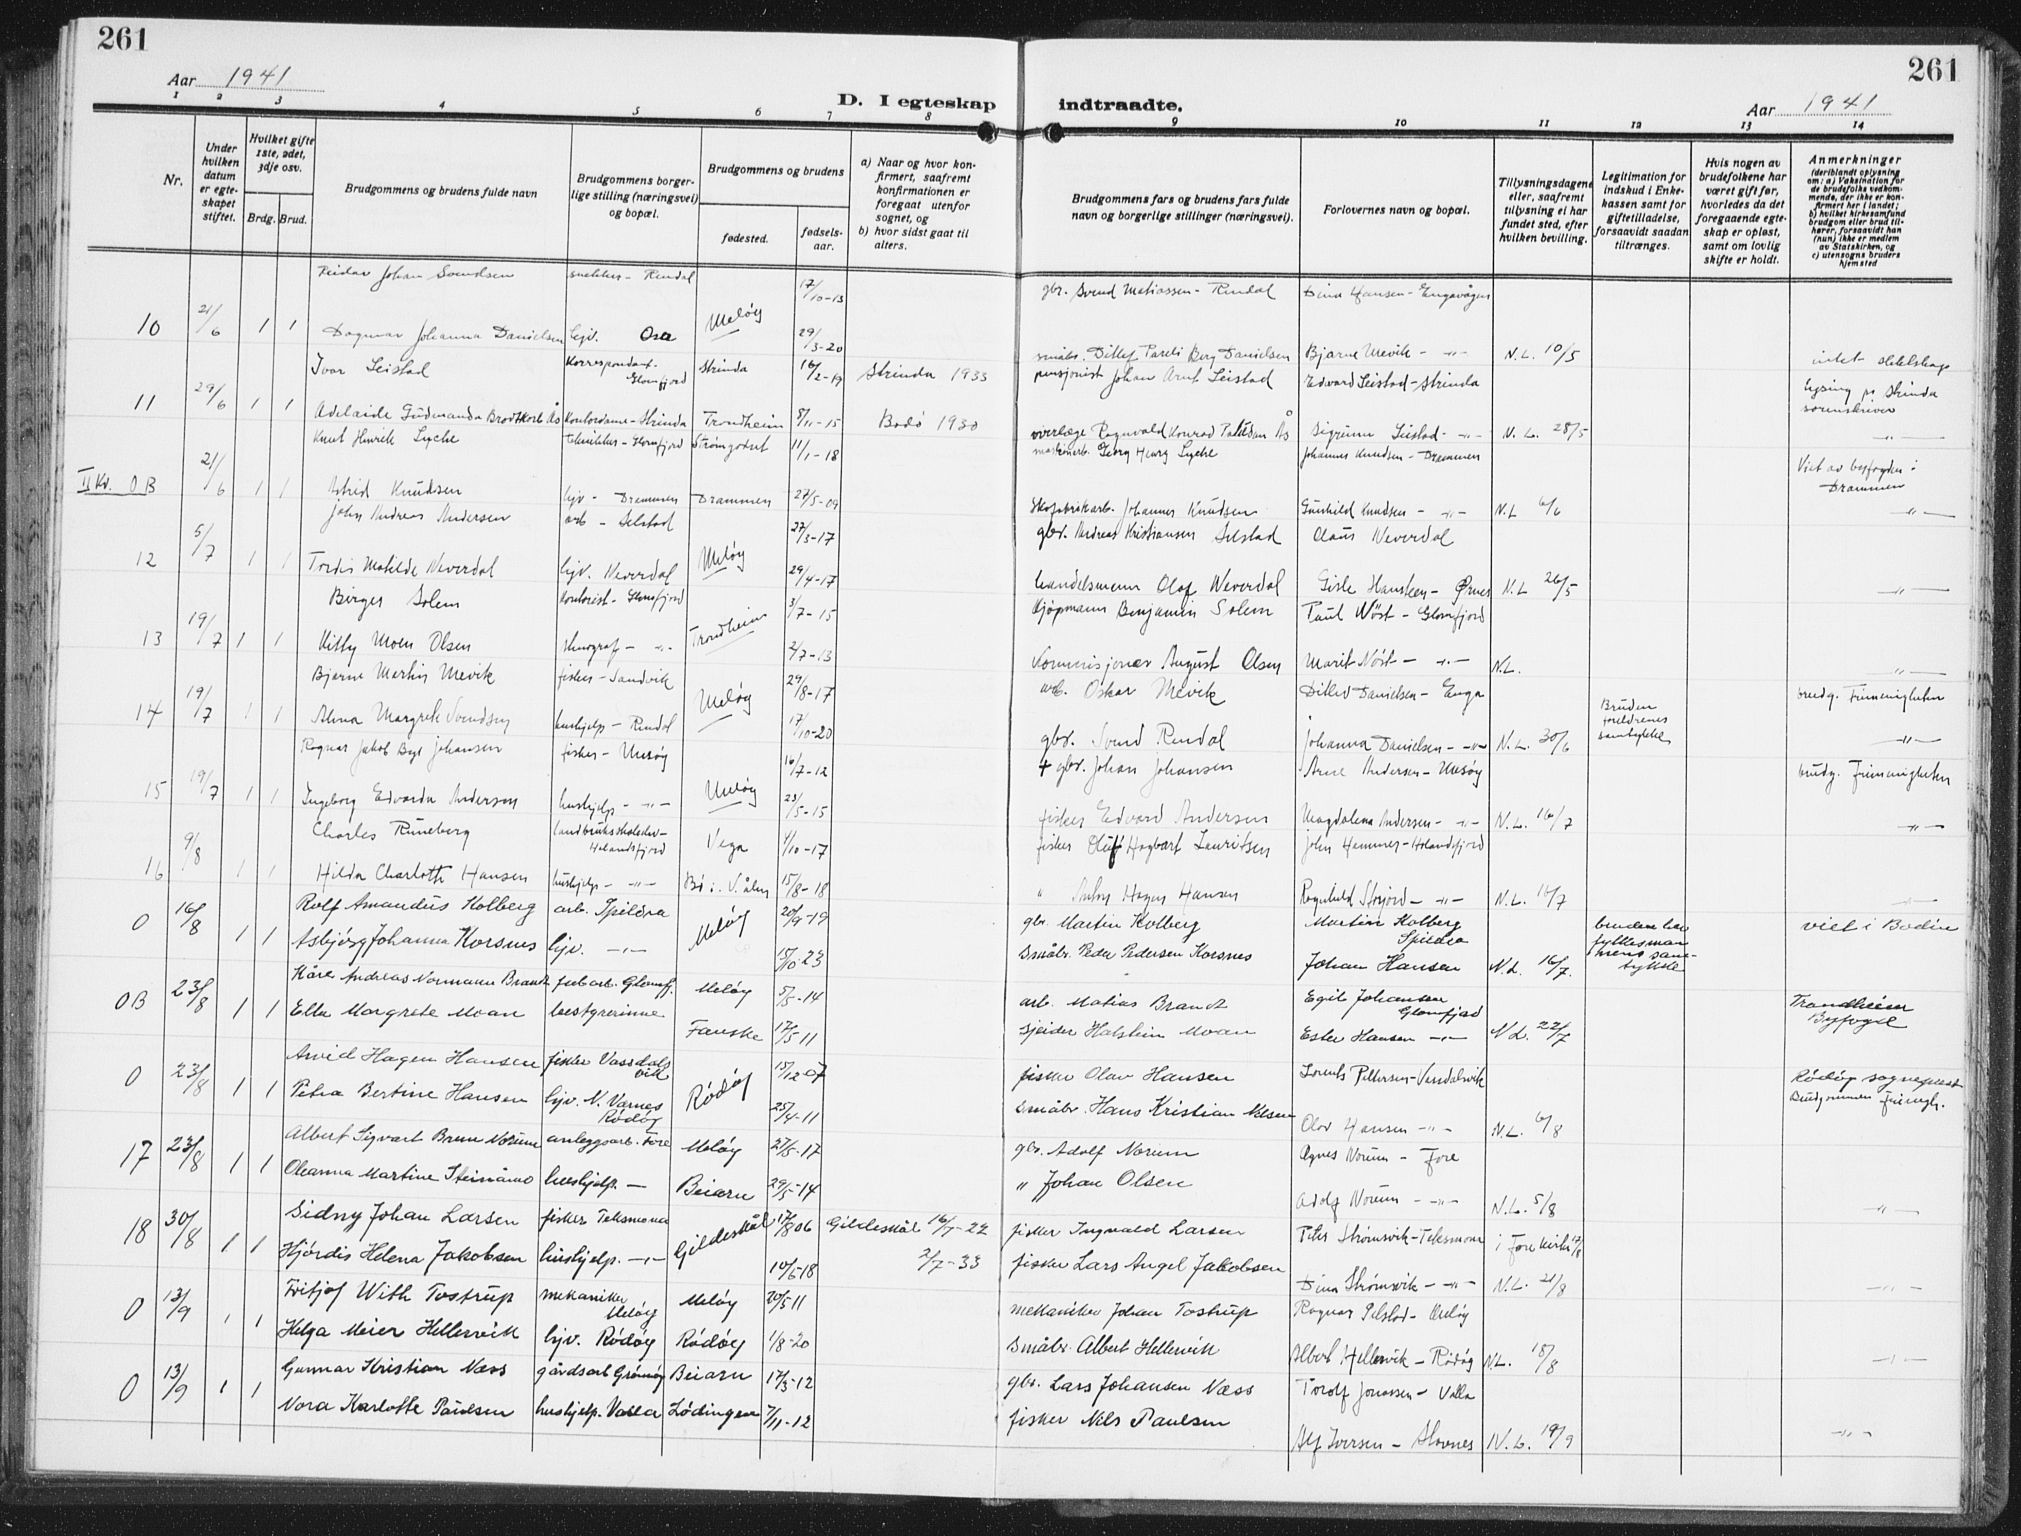 261
261
Aar 1941
D. I egteskap indtraadte.
Aar 1941
1 2 3 4 5 6 7 8 9 10 11 12 13 14
Nr.
Under hvilken datum er egteskapet stiftet.
Hvilket gifte 1ste, 2det, 3dje osv.
Brdg. Brud.
Brudgommens og brudens fulde navn
Brudgommens borgerlige stilling (næringsvei) og bopæl.
Brudgommens og brudens
fødested.
fødselsaar.
a) Naar og hvor konfirmert, saafremt konfirmationen er foregaat utenfor sognet, og
b) hvor sidst gaat til alters.
Brudgommens fars og brudens fars fulde navn og borgerlige stillinger (næringsvei).
Forlovernes navn og bopæl.
Tillysningsdagene eller, saafremt tillysning ei har fundet sted, efter hvilken bevilling.
Legitimation for indskud i Enkekassen samt for giftetilladelse, forsaavidt saadan tiltrænges.
Hvis nogen av brudefolkene har været gift før, hvorledes da det foregaaende egteskap er opløst, samt om lovlig skifte er holdt.
Anmerkninger (deriblandt oplysning om: a) Vaksination for de brudefolks vedkommende, der ikke er konfirmert her i landet; b) hvilket kirkesamfund brudgom eller brud tilhører, forsaavidt han (hun) ikke er medlem av Statskirken, og c) utensogns bruders hjemsted
Reidar Johan Svendsen snekker - Rendal 17/10-13 gbr. Svend Matiassen - Rendal Dina Hansen - Engavågen
10 21/6 1 1 Dagmar Johanna Danielsen hjv. Osa Meløy 29/3-20 småbr. Ditlef Pareli Berg Danielsen Bjarne Mevik - -"- N.L. 10/5 intet slektskap
Ivar Leistad Korrespondent - Glomfjord Strinda 16/2-19 Strinda 1933 pensjonist Johan Arnt Leistad Edvard Leistad - Strinda lysing på Strinda sorenskriver
11 29/6 1 1 Adelaide Gudmanda Brodtkorb Ås Kontordame - Strinda Trondheim 8/11-15 Bodö 1930 overlæge Rognvald Konrad Ås Sigrunn Leistad - -"- N.L. 28/5 -"-
Knut Henrik Lyche tekniker - Glomfjord Strømgodset 11/1-18 maskinarb. Georg Henry Lyche Johannes Knudsen - Drammen Viet av byfogden i Drammen
II Kv. OB 21/6 1 1 Astrid Knudsen hjv - Drammen Drammen 27/5-09 Skofabrikarb. Johannes Knudsen Gunhild Knudsen - -"- N.L 6/6 -"-
John Andreas Andersen arb - Selstad 27/3-17 gbr. Andreas Kristiansen Selstad Claus Neverdal
12 5/7 1 1 Tordis Matilde Neverdal hjv. Neverdal Meløy 29/4-17 handelsmann Olaf Neverdal Gisle Hansteen - Ørnes N.L 26/5 -"-
Birger Solem Kontorist - Glomfjord 3/7-15 Kjøpmann Benjamin Solem Paul Nöst - Glomfjord
13 19/7 1 1 Kitty Moen Olsen stenograf - -"- Trondheim 2/7-13 Kommisjonær August Olsen Marit Nöst - -"- N.L. -"-
Bjarne Martin Mevik fisker - Sandvik 29/8-17 arb. Oskar Mevik Ditlev Danielsen - Enga brudg. Frimenigheten
14 19/7 1 1 Alma Margrete Svendsen hushjelp - Rendal Meløy 17/10-20 gbr. Svend Rendal Johanna Danielsen - -"- N.L. 30/6 Bruden foreldrenes samtykke -"-
Ragnar Jakob Johansen fisker - Mesøy 16/7-12 + gbr. Johan Johansen Arne Andersen - Mesøy brudg. Frimenigheten
15 19/7 1 1 Ingeborg Edvarda Andersen hushjelp - -"- Meløy 23/5-15 fisker Edvard Andersen Magdalena Andersen - -"- N.L. 16/7 -"-
Charles Runeberg landbruksskoleelev - Holandsfjord Vega 4/10-17 fisker Oluf Hagbart Lauritsen John Hammer - Holandsfjord
16 9/8 1 1 Hilda Charlotte Hansen hushjelp - -"- Bø i V.ålen 15/8-18 " Anton Hagen Hansen Ragnhild Storjord - -"- N.L. 16/7 -"-
O 16/8 1 1 Rolf Amandus Kolberg arb. Spildra Meløy 20/9-19 gbr. Martin Kolberg Martin Kolberg Spildra bruden har fylkesmannens samtykke viet i Bodin
Asbjörg Johanna Korsnes hjv. -"- 15/10-23 Småbr. Peder Pedersen Korsnes Johan Hansen N.L. 16/7.
OB 23/8 1 1 Kåre Andreas Normann Brandt fabarb. Glomfj. Meløy 5/5-14 arb. Matias Brandt Egil Johansen Glomfjord Trondheim Byfogd
Ella Margrete Moan bestyrerinne Fauske 17/5 11 Halstein Moan Ester Hansen -"- N.L. 22/7
O 23/8 1 1 Arvid Hagen Hansen fisker Vassdalsvik Rödöy 15/12 07 fisker Olav Hansen Lorents Pettersen - Vasdalsvik Rödöy sogneprest Brudgommen Frimgh.
Petra Bertine Hansen hjv. N. Værnes Rödöy 25/4-11 Småbr. Hans Kristian Nilsen Olav Hansen -"- N.L. 6/8
17 23/8 1 1 Albert Sigvart Brun Norum anleggsarb. Fore Meløy 27/5-17 gbr. Adolf Norum Agnes Norum - Fore
Oleanna Martine Steinåmo hushjelp. - Beiarn 29/5-14 " Johan Olsen Adolf Norum - -"- N.L. 5/8 -"-
18 30/8 1 1 Sidny Johan Larsen fisker Teksmona Gildeskål 17/8 06 Gildeskål 16/7-22 fisker Ingvald Larsen Peter Strømsvik - Teksmona i Fore Kirke 17/8
Hjördis Helena Jakobsen hushjelp. -"- 10/6-18 2/7-33 fisker Lars Angel Jakobsen Dina Strømsvik - -"- N.L. 21/8 -"-
O 13/9 1 1 Fritjof With Tostrup mekaniker Meløy Meløy 20/5 11 mekaniker Johan Tostrup Ragnar Selstad - Meløy
Helga Meier Hellervik hjv. Rödöy Rödöy 1/8-20 Småbr. Albert Hellervik Albert Hellervik - Rödöy N.L. 18/8 -"-
O 13/9 1 1 Gunnar Kristian Næss gårdsarb Grönöy Beiarn 17/3-12 gbr. Lars Johansen Næss Torolf Jonassen - Valla
Nora Karlotte Paulsen hushjelp. Valla Lødingen 7/11-12 fisker Nils Paulsen Alf Iversen - N.L. 19/9 -"-